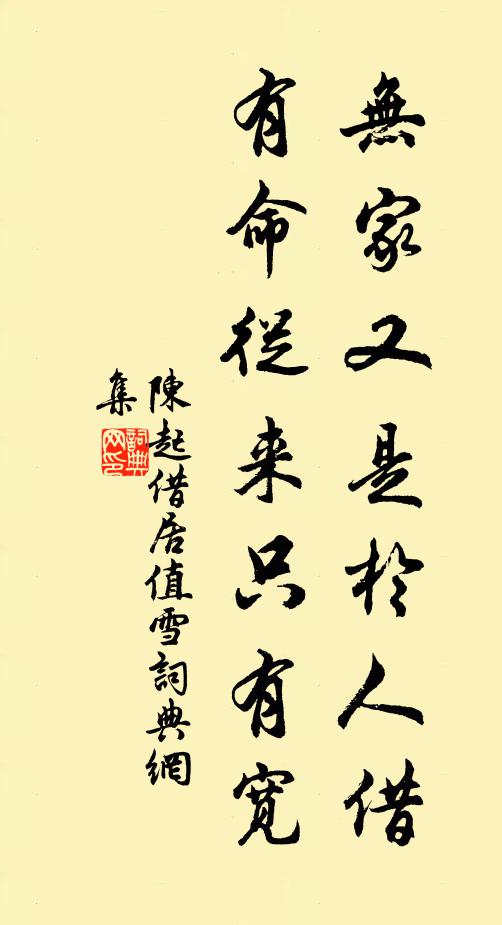 無家又是於人借
有命從来只有寬
陳起借居值雪詞典網
集
詞典
网印